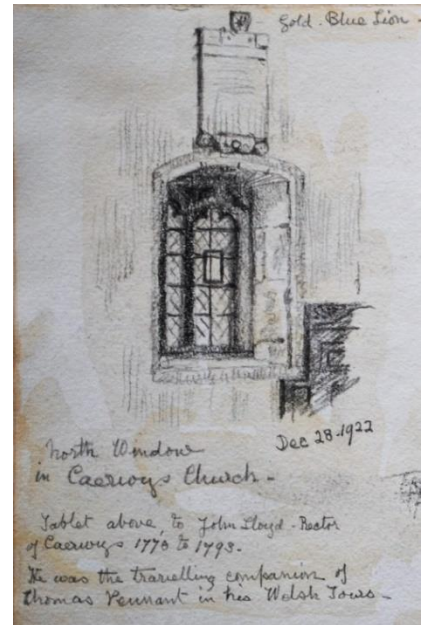 Gold. Blue Lion.
North Window
in Caerwys Church -
Dec 28. 1922
Tablet above, to John Lloyd - Rector
of Caerwys 1778 to 1793.
He was the travelling companion of
Thomas Pennant in his Welsh Tours -